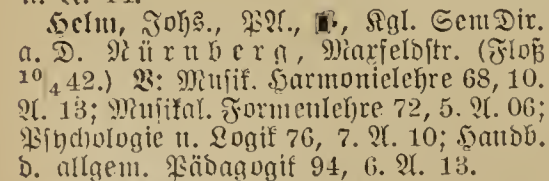 Helm, Johs., PA., Kgl. SemDir.
a. D. Nürnberg, Maxfeldstr. (Floß
10/4 42.) V: Musik. Harmonielehre 68, 10.
A. 13; Musikal. Formenlehre 72, 5. A. 06;
Psychologie u. Logik 76, 7. A. 10; Handb.
d. allgem. Pädagogik 94, 6. A. 13.